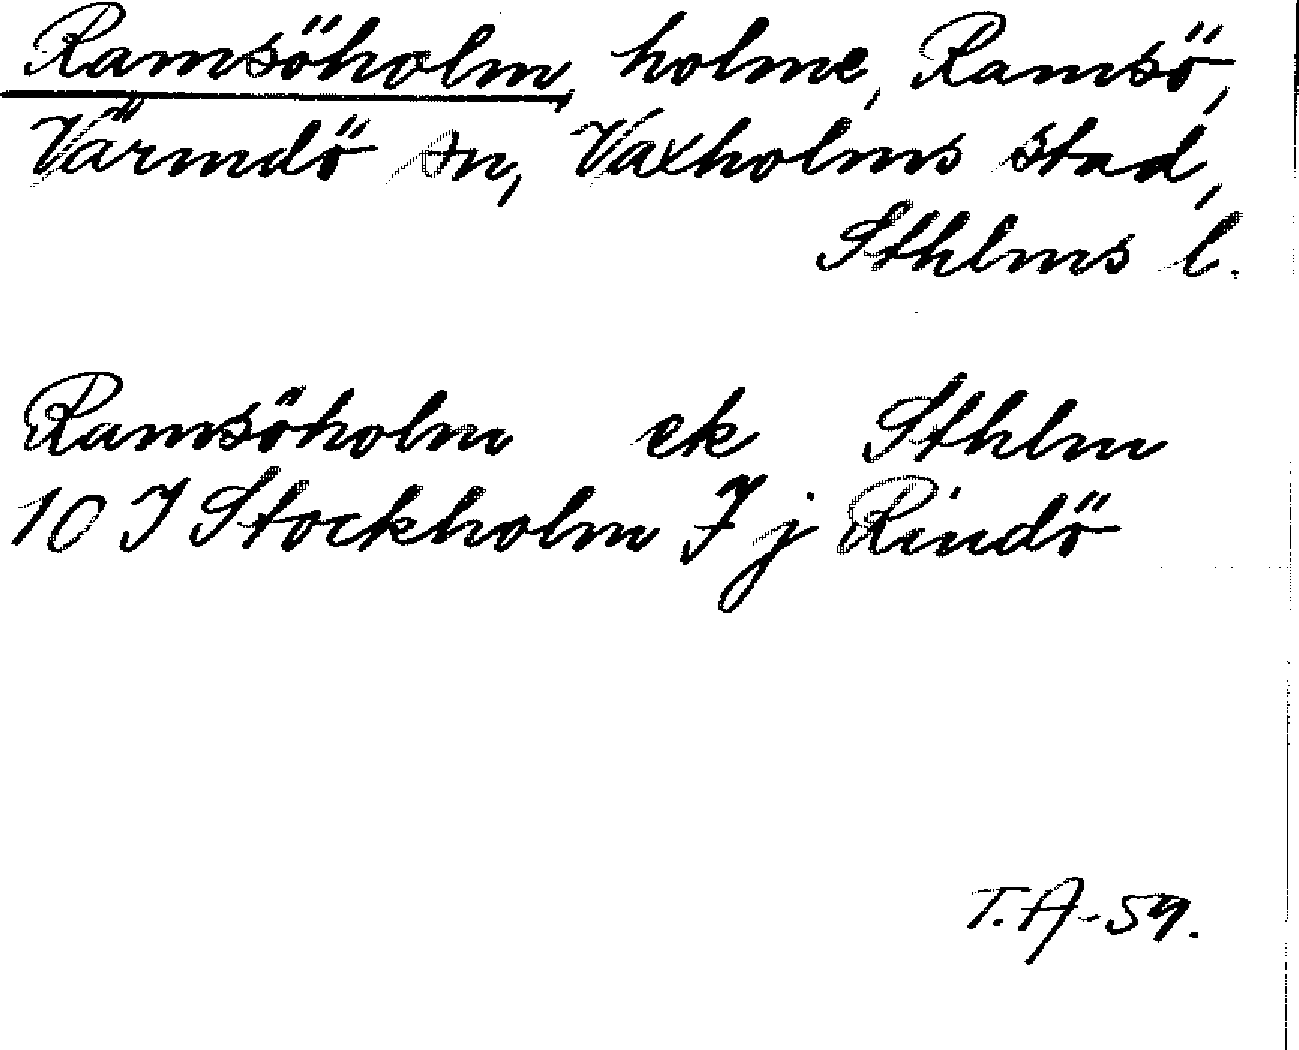 Ramsöholm, holme, Ramsö,
Värmdö sn, Vaxholms stad,
Sthlms l.
Ramsöholm ek Sthlm
10 I Stockholm 7 j Rindö
T.A-59.